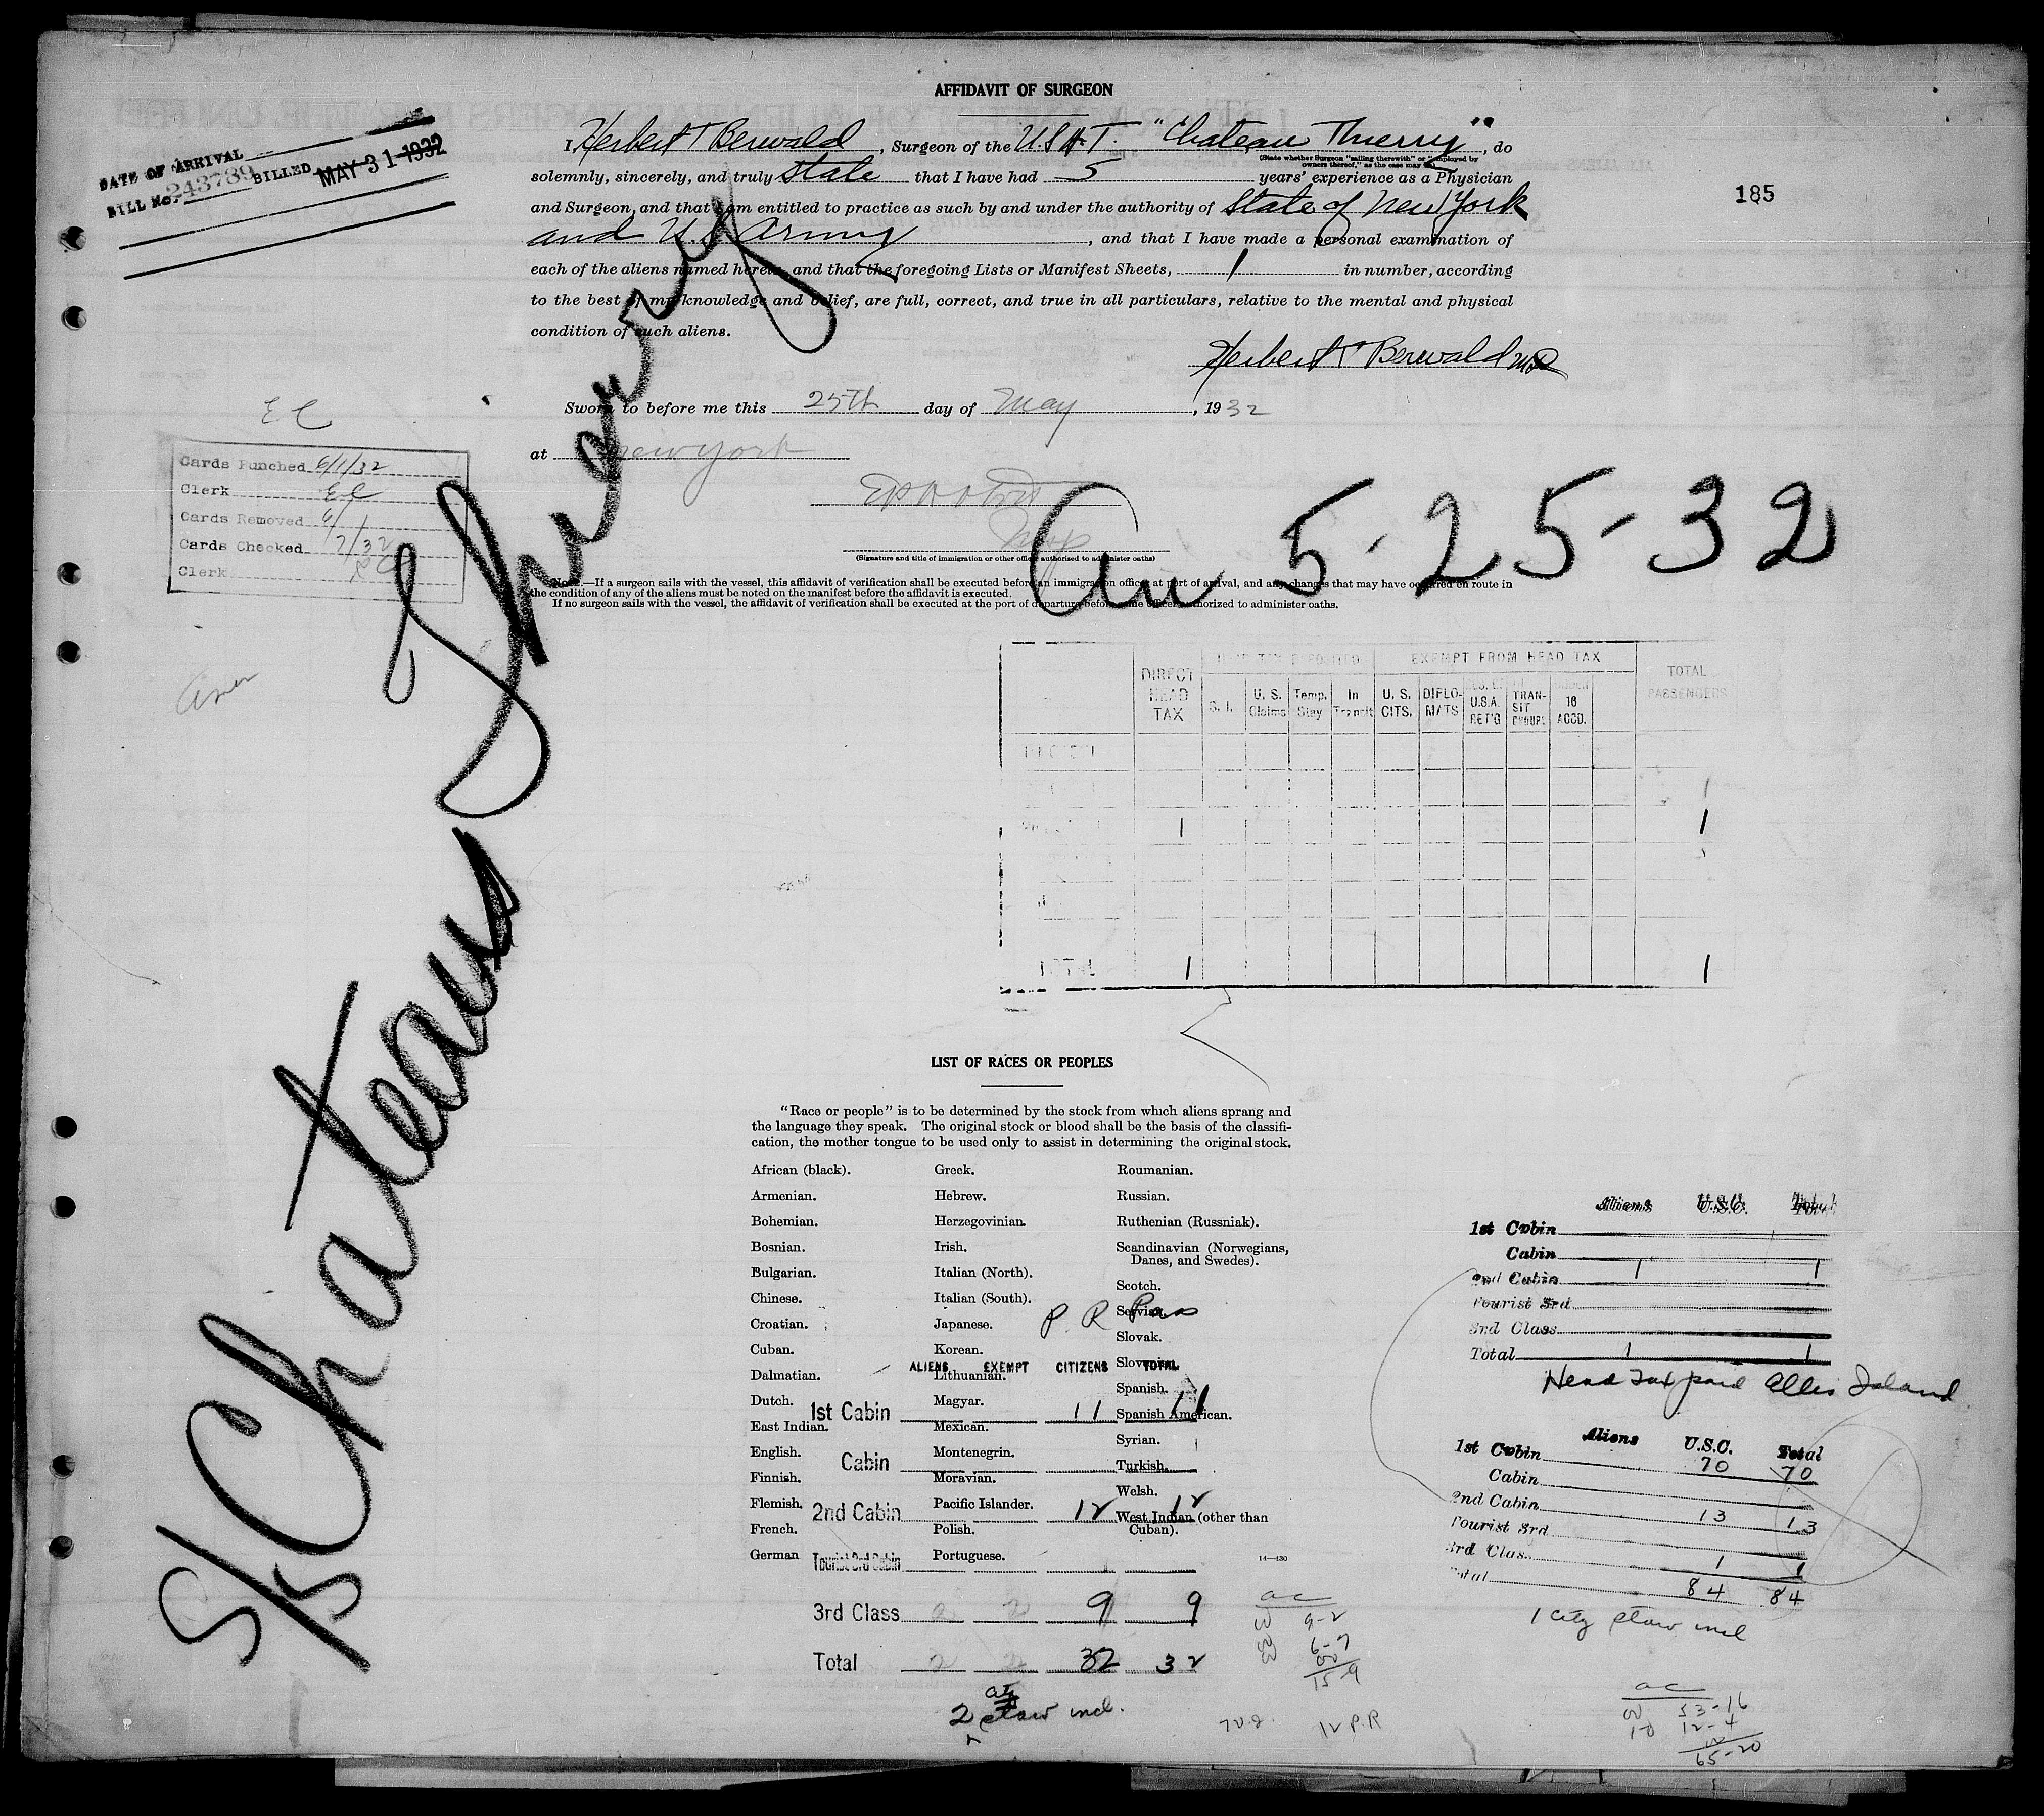 AFFIDAVIT OF SURGEON
I, Herbert T Berwald, Surgeon of the U.S.A.T. "Chateau Thierry", do
(State whether Surgeon "sailing therewith" or "employed by owners thereof," as the case may be)
solemnly, sincerely, and truly state that I have had 5 years' experience as a Physician
and Surgeon, and that I am entitled to practice as such by and under the authority of State of New York
and U.S. Army, and that I have made a personal examination of
each of the aliens named herein, and that the foregoing Lists or Manifest Sheets, 1 in number, according
to the best of my knowledge and belief, are full, correct, and true in all particulars, relative to the mental and physical
condition of such aliens.
Herbert T Berwald MD
Sworn to before me this 25th day of May, 1932
at New York
Insp
(Signature and title of immigration or other officer authorized to administer oaths)
NOTE.—If a surgeon sails with the vessel, this affidavit of verification shall be executed before an immigration officer at port of arrival, and any changes that may have occurred en route in
the condition of any of the aliens must be noted on the manifest before the affidavit is executed.
If no surgeon sails with the vessel, the affidavit of verification shall be executed at the port of departure before some officer authorized to administer oaths.
DATE OF ARRIVAL
BILL No. 243789 BILLED MAY 31 1932
185
EC
Cards Punched 6/1/32
Clerk EC
Cards Removed 6/1
Cards Checked 7/32
Clerk
S/S Chateau Thierry
Arr 5-25-32
DIRECT HEAD TAX
HEAD TAX DEPOSITED
EXEMPT FROM HEAD TAX
TOTAL PASSENGERS
S. I.
U. S. Claims
Temp. Stay
In Transit
U. S. CITS.
DIPLOMATS
U.S.A. RET'G
TRANSIT GROUPS
UNDER 16 ACCD.
1
1 1
TOTAL 1 1
LIST OF RACES OR PEOPLES
"Race or people" is to be determined by the stock from which aliens sprang and
the language they speak. The original stock or blood shall be the basis of the classifi-
cation, the mother tongue to be used only to assist in determining the original stock.
African (black).
Armenian.
Bohemian.
Bosnian.
Bulgarian.
Chinese.
Croatian.
Cuban.
Dalmatian.
Dutch.
East Indian.
English.
Finnish.
Flemish.
French.
German
Greek.
Hebrew.
Herzegovinian.
Irish.
Italian (North).
Italian (South).
Japanese.
Korean.
Lithuanian.
Magyar.
Mexican.
Montenegrin.
Moravian.
Pacific Islander.
Polish.
Portuguese.
Roumanian.
Russian.
Ruthenian (Russniak).
Scandinavian (Norwegians,
Danes, and Swedes).
Scotch.
Servian.
Slovak.
Slovenian.
Spanish.
Spanish American.
Syrian.
Turkish.
Welsh.
West Indian (other than
Cuban).
14—430
P. R Pas
ALIENS EXEMPT CITIZENS TOTAL
1st Cabin 11 11
Cabin
2nd Cabin 12 12
Tourist 3rd Cabin
3rd Class 2 2 9 9
Total 2 2 32 32
2 staw incl.
ac
9-2
6-7
15-9
12 P.R
Aliens U.S.C. Total
1st Cabin
Cabin
2nd Cabin 1 1
Tourist 3rd
3rd Class
Total 1 1
Head Tax paid Ellis Island
Aliens U.S.C. Total
1st Cabin 70 70
Cabin
2nd Cabin 13 13
Tourist 3rd
3rd Clas. 1 1
Total 84 84
1 city staw incl
ac
53-16
12-4
65-20